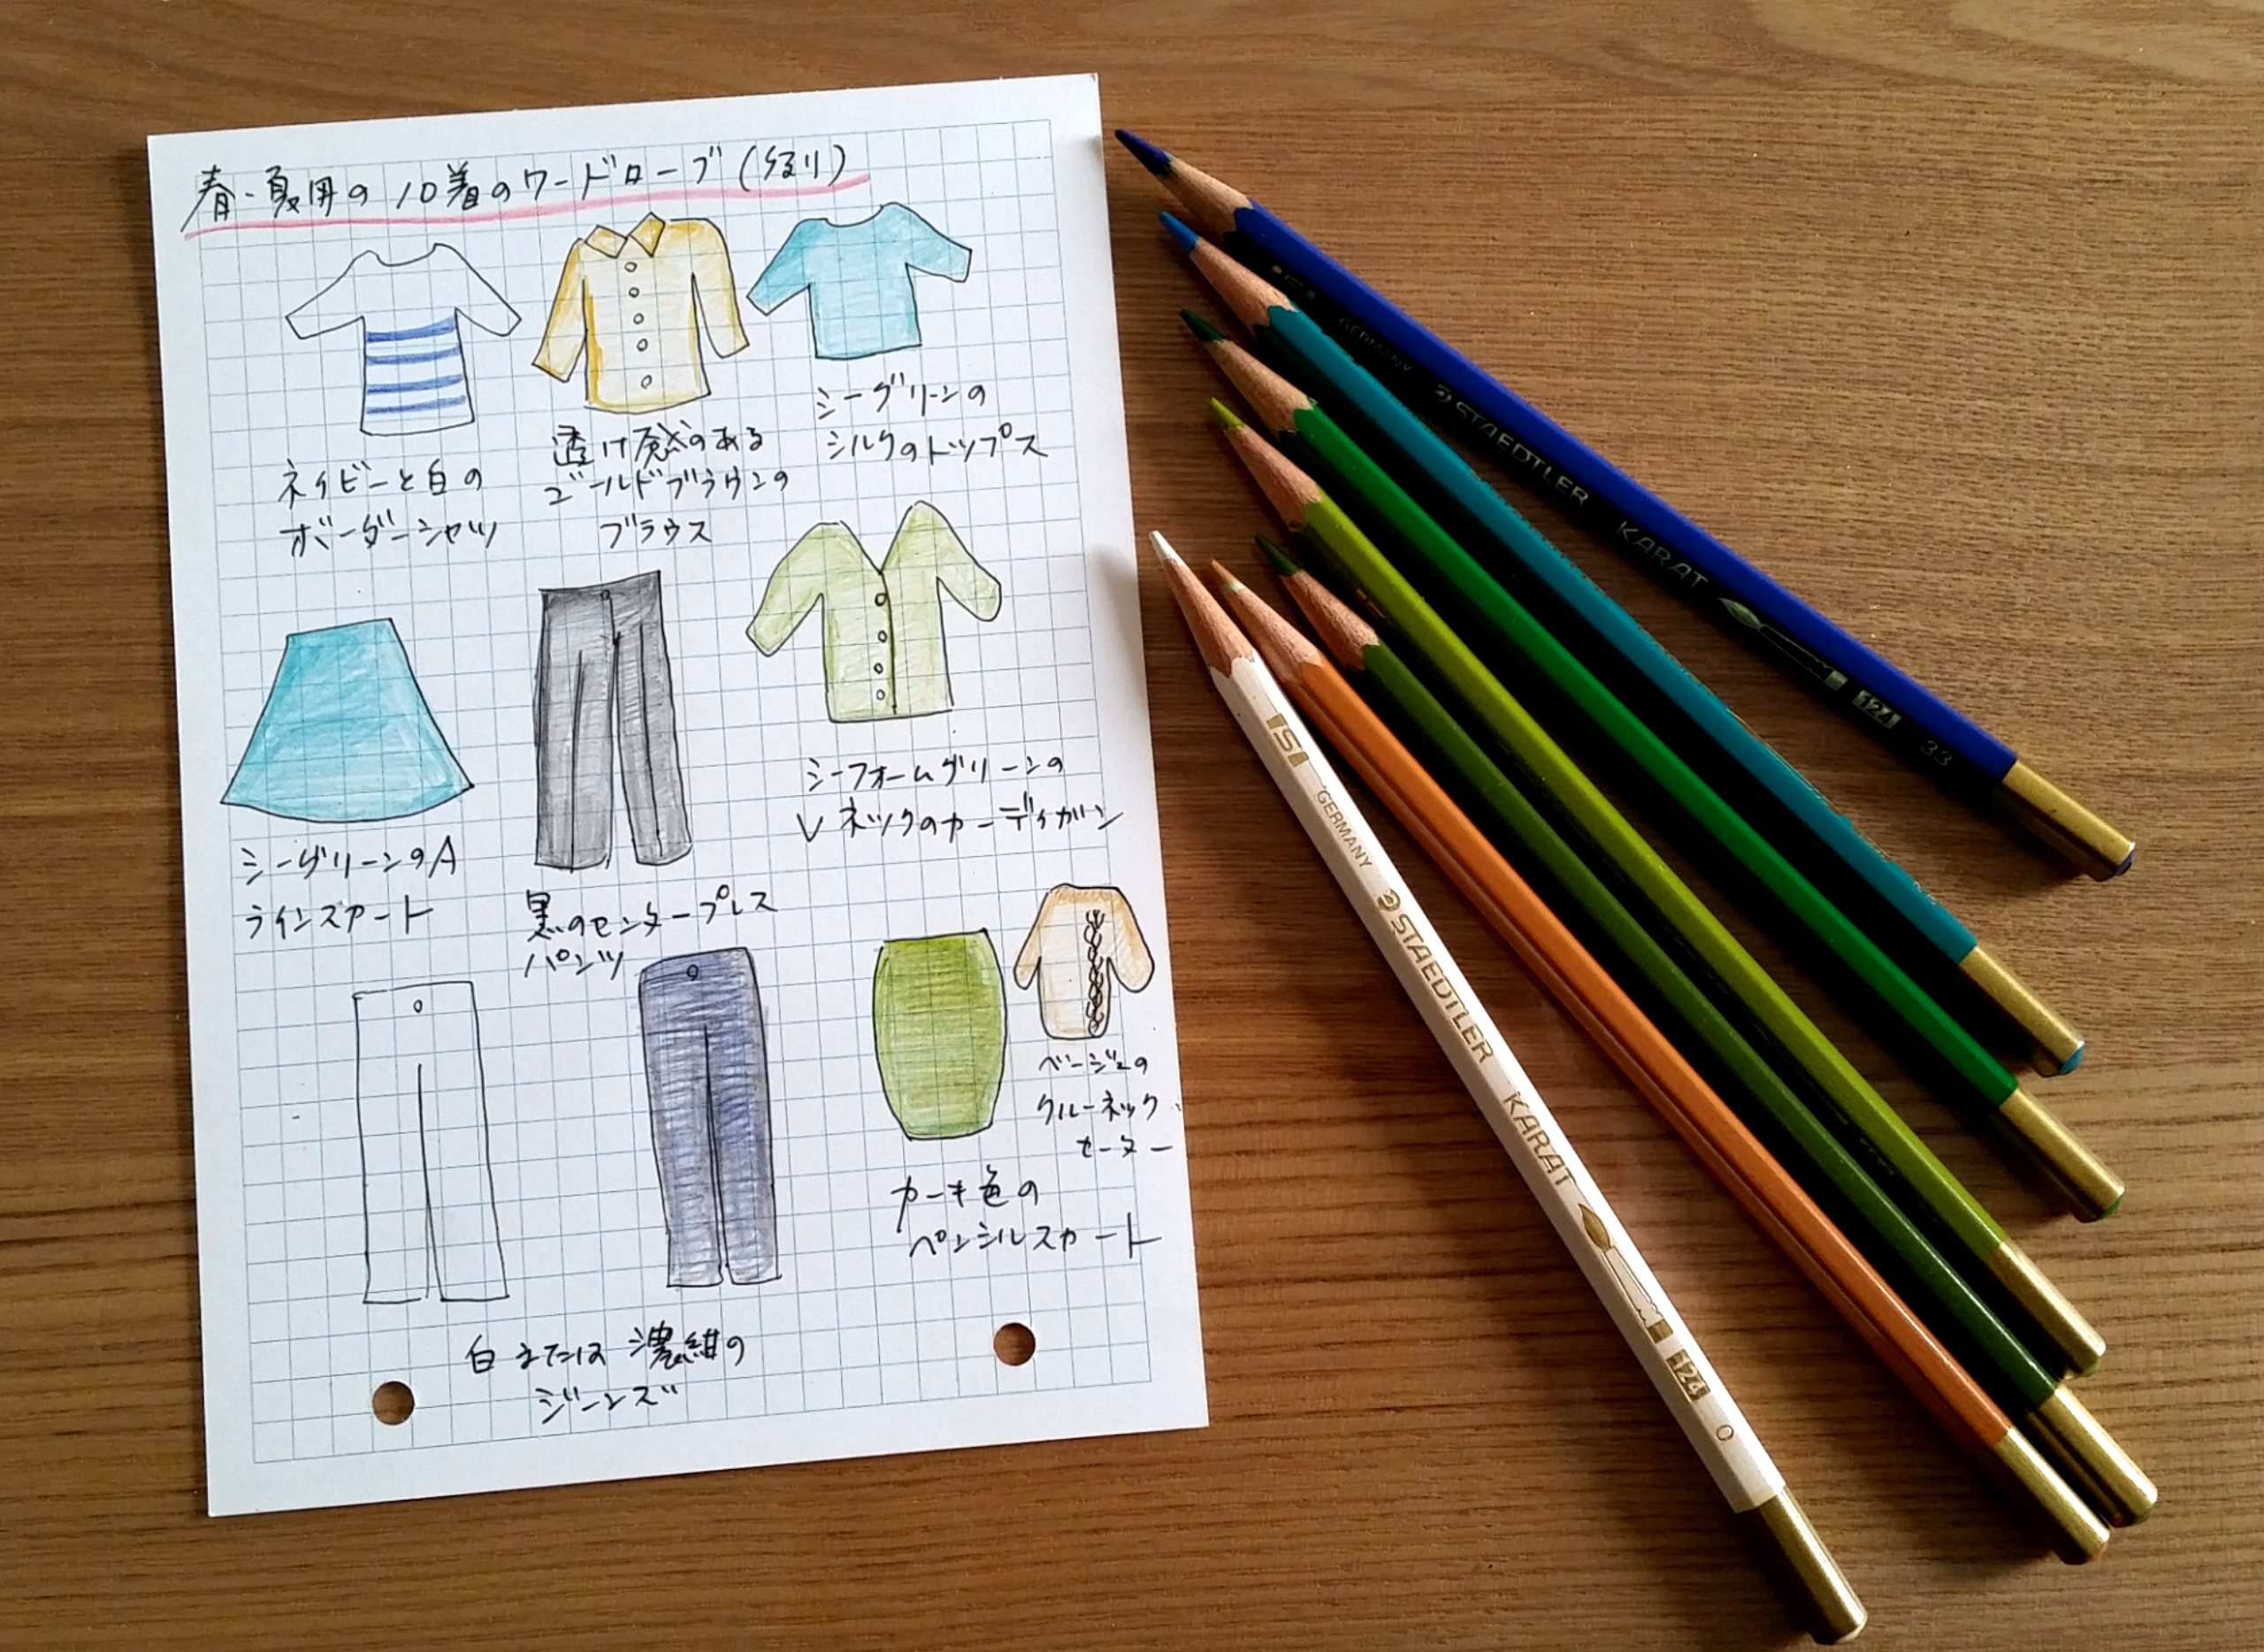 春・夏用の10着のワードローブ(綴り)
ネイビーと白の
ボーダーシャツ
透け感のある
ゴールドブラウンの
ブラウス
シーグリーンの
シルクのトップス
シーグリーンのA
ラインスカート
黒のセンタープレス
パンツ
シーフォームグリーンの
Vネックのカーディガン
白または濃紺の
ジーンズ
カーキ色の
ペンシルスカート
ベージュの
クルーネック
セーター
GERMANY STAEDTLER KARAT 124 33
S GERMANY STAEDTLER KARAT 124 0